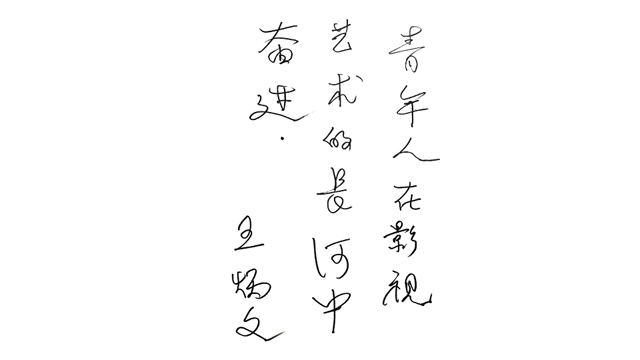 青年人在影视
艺术的长河中
奋进.
王炳文